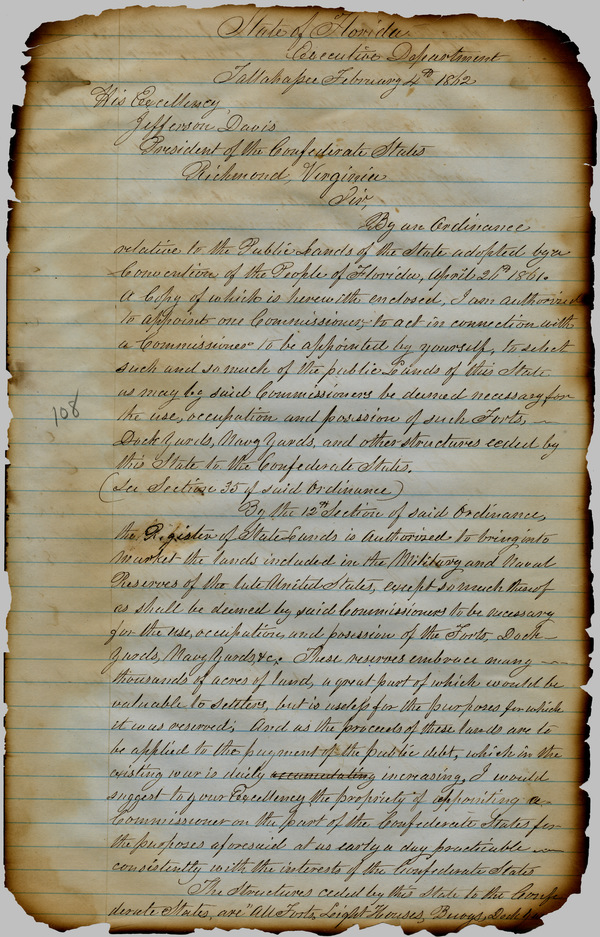 State of Florida
Executive Department
Tallahassee February 4th 1862
His Excellency
Jefferson Davis
President of the Confederate States
Richmond, Virginia
Sir,
By an Ordinance
relative to the Public Lands of the State adopted by a
Convention of the People of Florida, April 21st 1861.
A Copy of which is herewith enclosed, I am authorized
to appoint one Commissioner, to act in connection with
a Commissioner to be appointed by yourself, to select
such and so much of the public Lands of this State
as may by said Commissioners be deemed necessary for
the use, occupation and possession of such Forts,
Dock Yards, Navy Yards, and other structures ceded by
this State to the Confederate States.
(See Section 35 of said Ordinance)
By the 12th Section of said Ordinance,
the Register of State Lands is authorized to bring into
market the lands included in the Military and Naval
Reserves of the late United States, except so much thereof
as shall be deemed by said Commissioners to be necessary
for the use, occupation, and posession of the Forts, Dock
Yards, Navy Yards, &c. These reserves embrace many
thousands of acres of land, a great part of which would be
valuable to settlers, but is useless for the purposes for which
it was reserved; And as the proceeds of these lands are to
be applied to the payment of the public debt, which in the
existing war is daily accumulating increasing, I would
suggest to your Excellency the propriety of appointing a
Commissioner on the part of the Confederate States for
the purposes aforesaid at as early a day practicable
consistently with the interests of the Confederate States
The Structures ceded by this State to the Confe
derate States, are "All Forts, Light Houses, Buoys, Dock
108